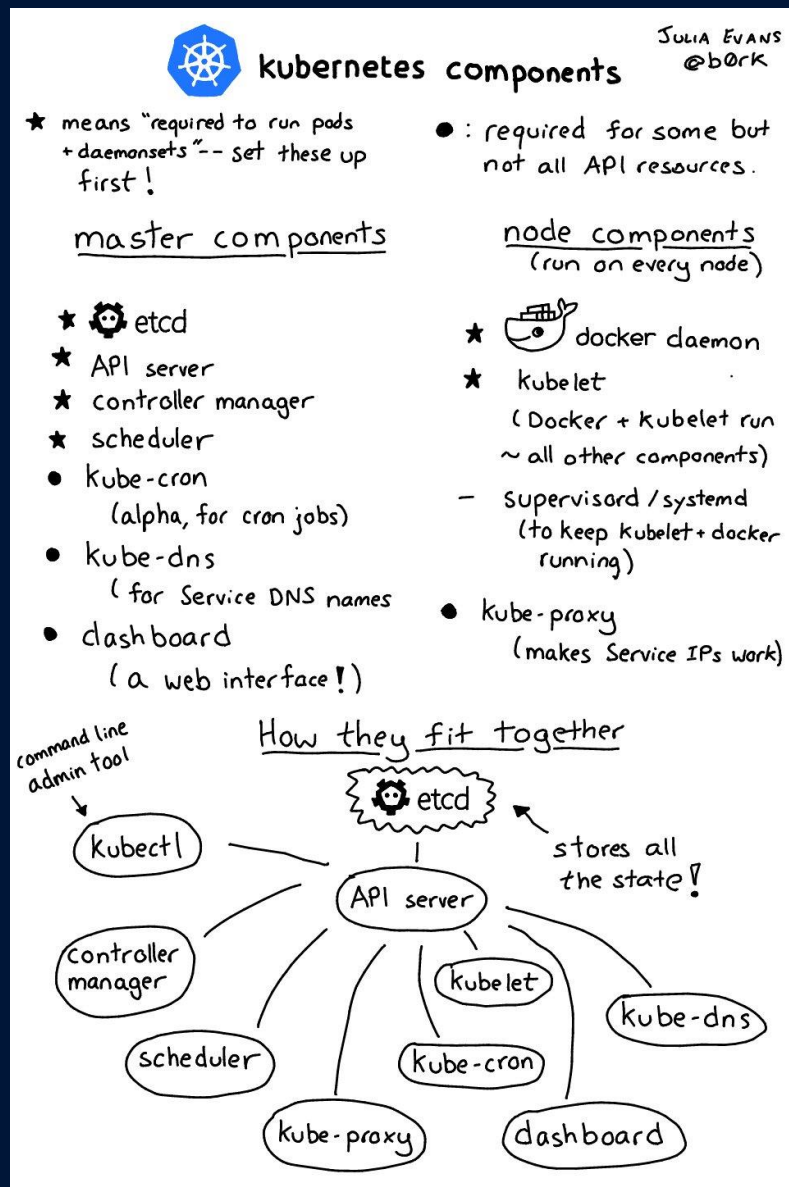 JULIA EVANS
@b0rk
kubernetes components
★ means "required to run pods
+ daemonsets" -- set these up
first!
● : required for some but
not all API resources.
master components
★ etcd
★ API server
★ controller manager
★ scheduler
● kube-cron
(alpha, for cron jobs)
● kube-dns
(for Service DNS names
● dashboard
(a web interface!)
node components
(run on every node)
★ docker daemon
★ kubelet
(Docker + kubelet run
~ all other components)
– supervisord/systemd
(to keep kubelet + docker
running)
● kube-proxy
(makes Service IPs work)
How they fit together
command line
admin tool
etcd
kubectl
stores all
the state!
API server
controller
manager
kubelet
kube-dns
scheduler
kube-cron
kube-proxy
dashboard